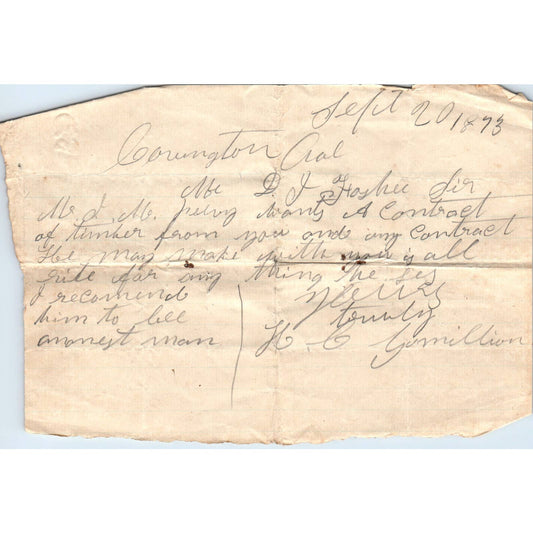 Sept 20 1873
Covington
Mr D. J. Foshee Sir
Mr. J. M. wants A Contract
of timber from you and any contract
He may make with you is all
rite far any thing the ses
I recomend
him to bee
annest man
Yours
truly
H. C. Gomillion